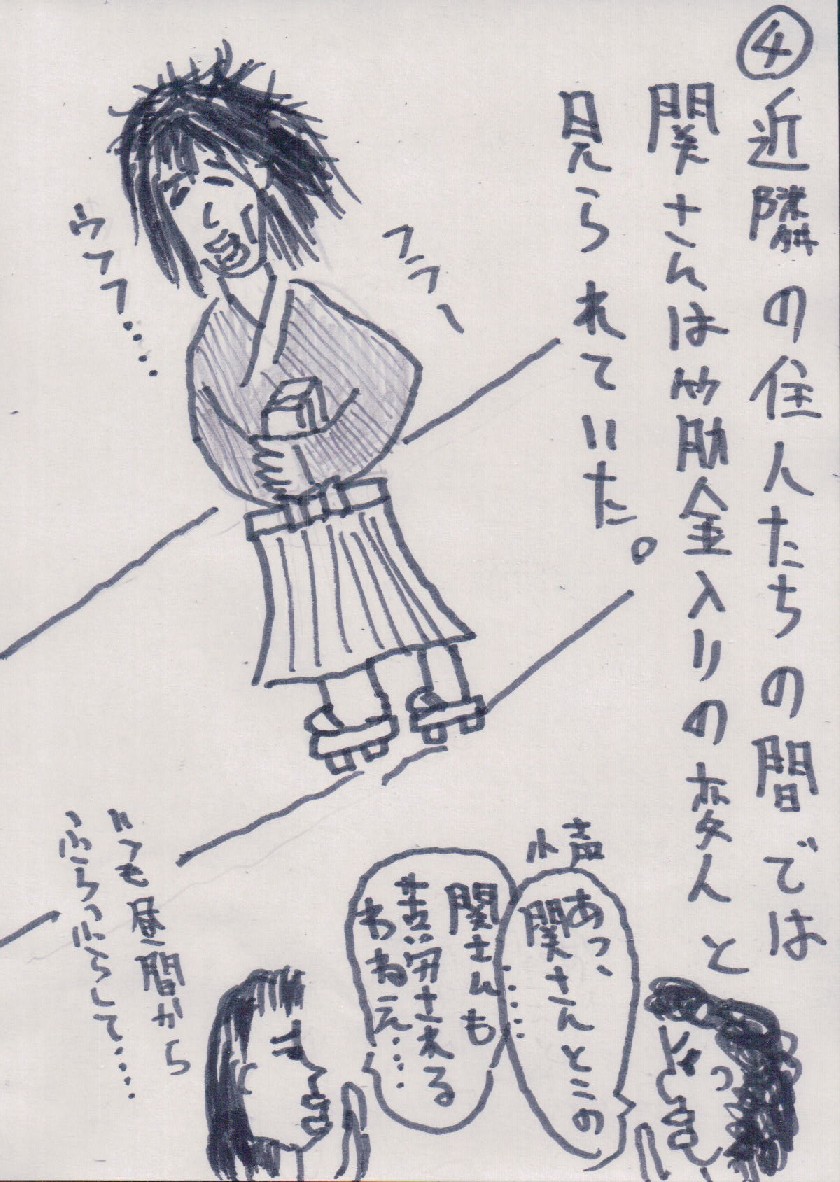 ④近隣の住人たちの間では
関さんは筋金入りの変人と
見られていた。
フフ〜
ウフフ・・・・
小声
あっ、
関さんとこの
・・・・・
関さんも
苦労される
わねえ・・・
いつも昼間から
ふらふらして・・・・